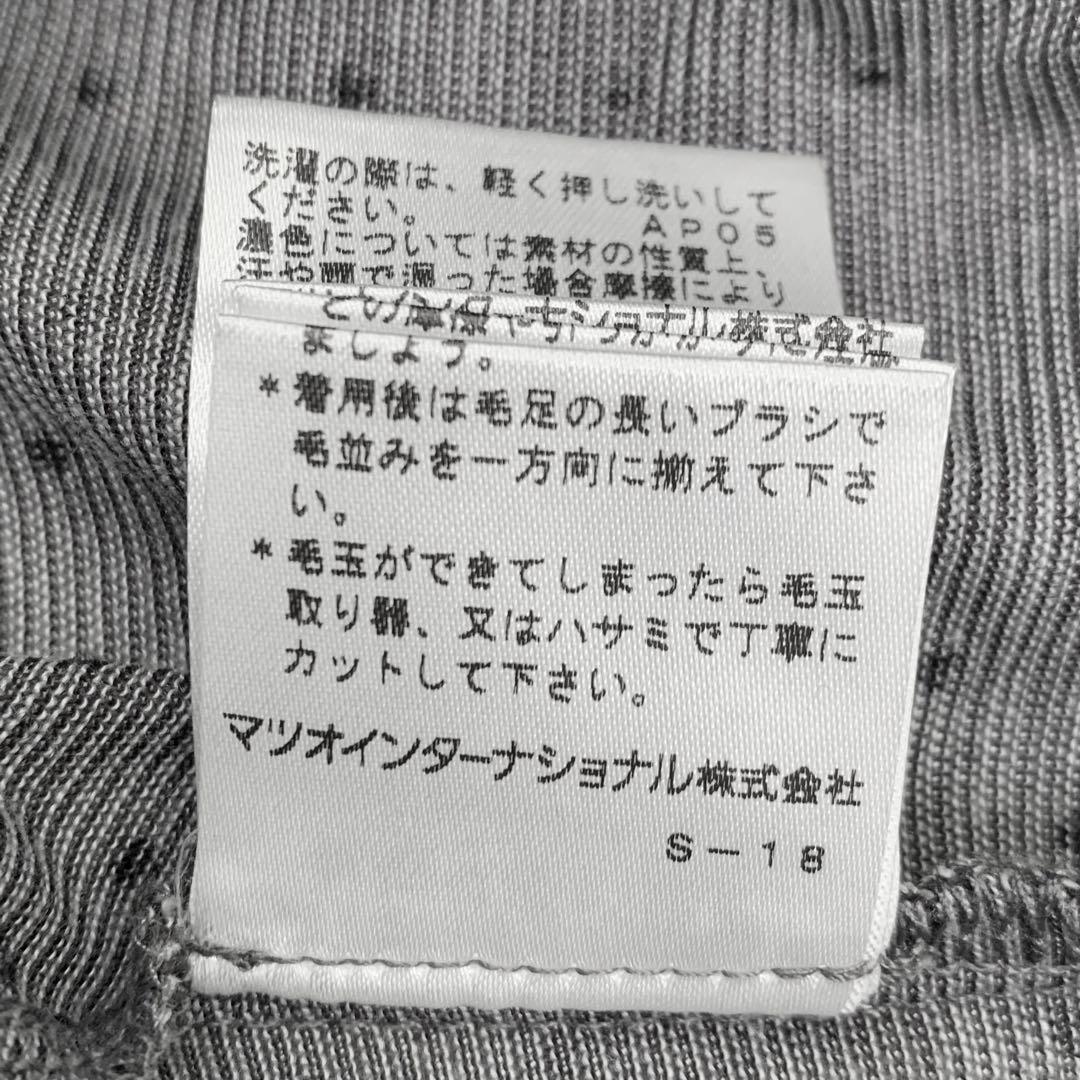 洗濯の際は、軽く押し洗いして
ください。
AP05
濃色については素材の性質上、
汗や雨で湿った場合摩擦により
ナショナル株式会社
ましょう。
*着用後は毛足の長いブラシで
毛並みを一方向に揃えて下さ
い。
*毛玉ができてしまったら毛玉
取り器、又はハサミで丁寧に
カットして下さい。
マツオインターナショナル株式会社
S-18